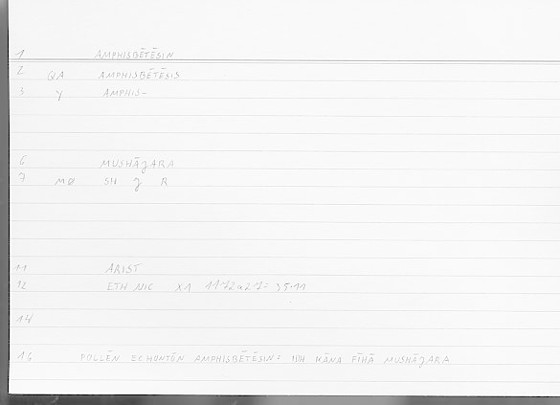 1 AMPHISBĒTĒSIN
2 QA AMPHISBĒTĒSIS
3 Y AMPHIS-
6 MUSHĀJARA
7 MØ SH J R
11 ARIST
12 ETH NIC X1 1172a27=
14
16 POLLĒN ECHONTŌN AMPHISBĒTĒSIN= KĀNA FĪHĀ MUSHĀJARA